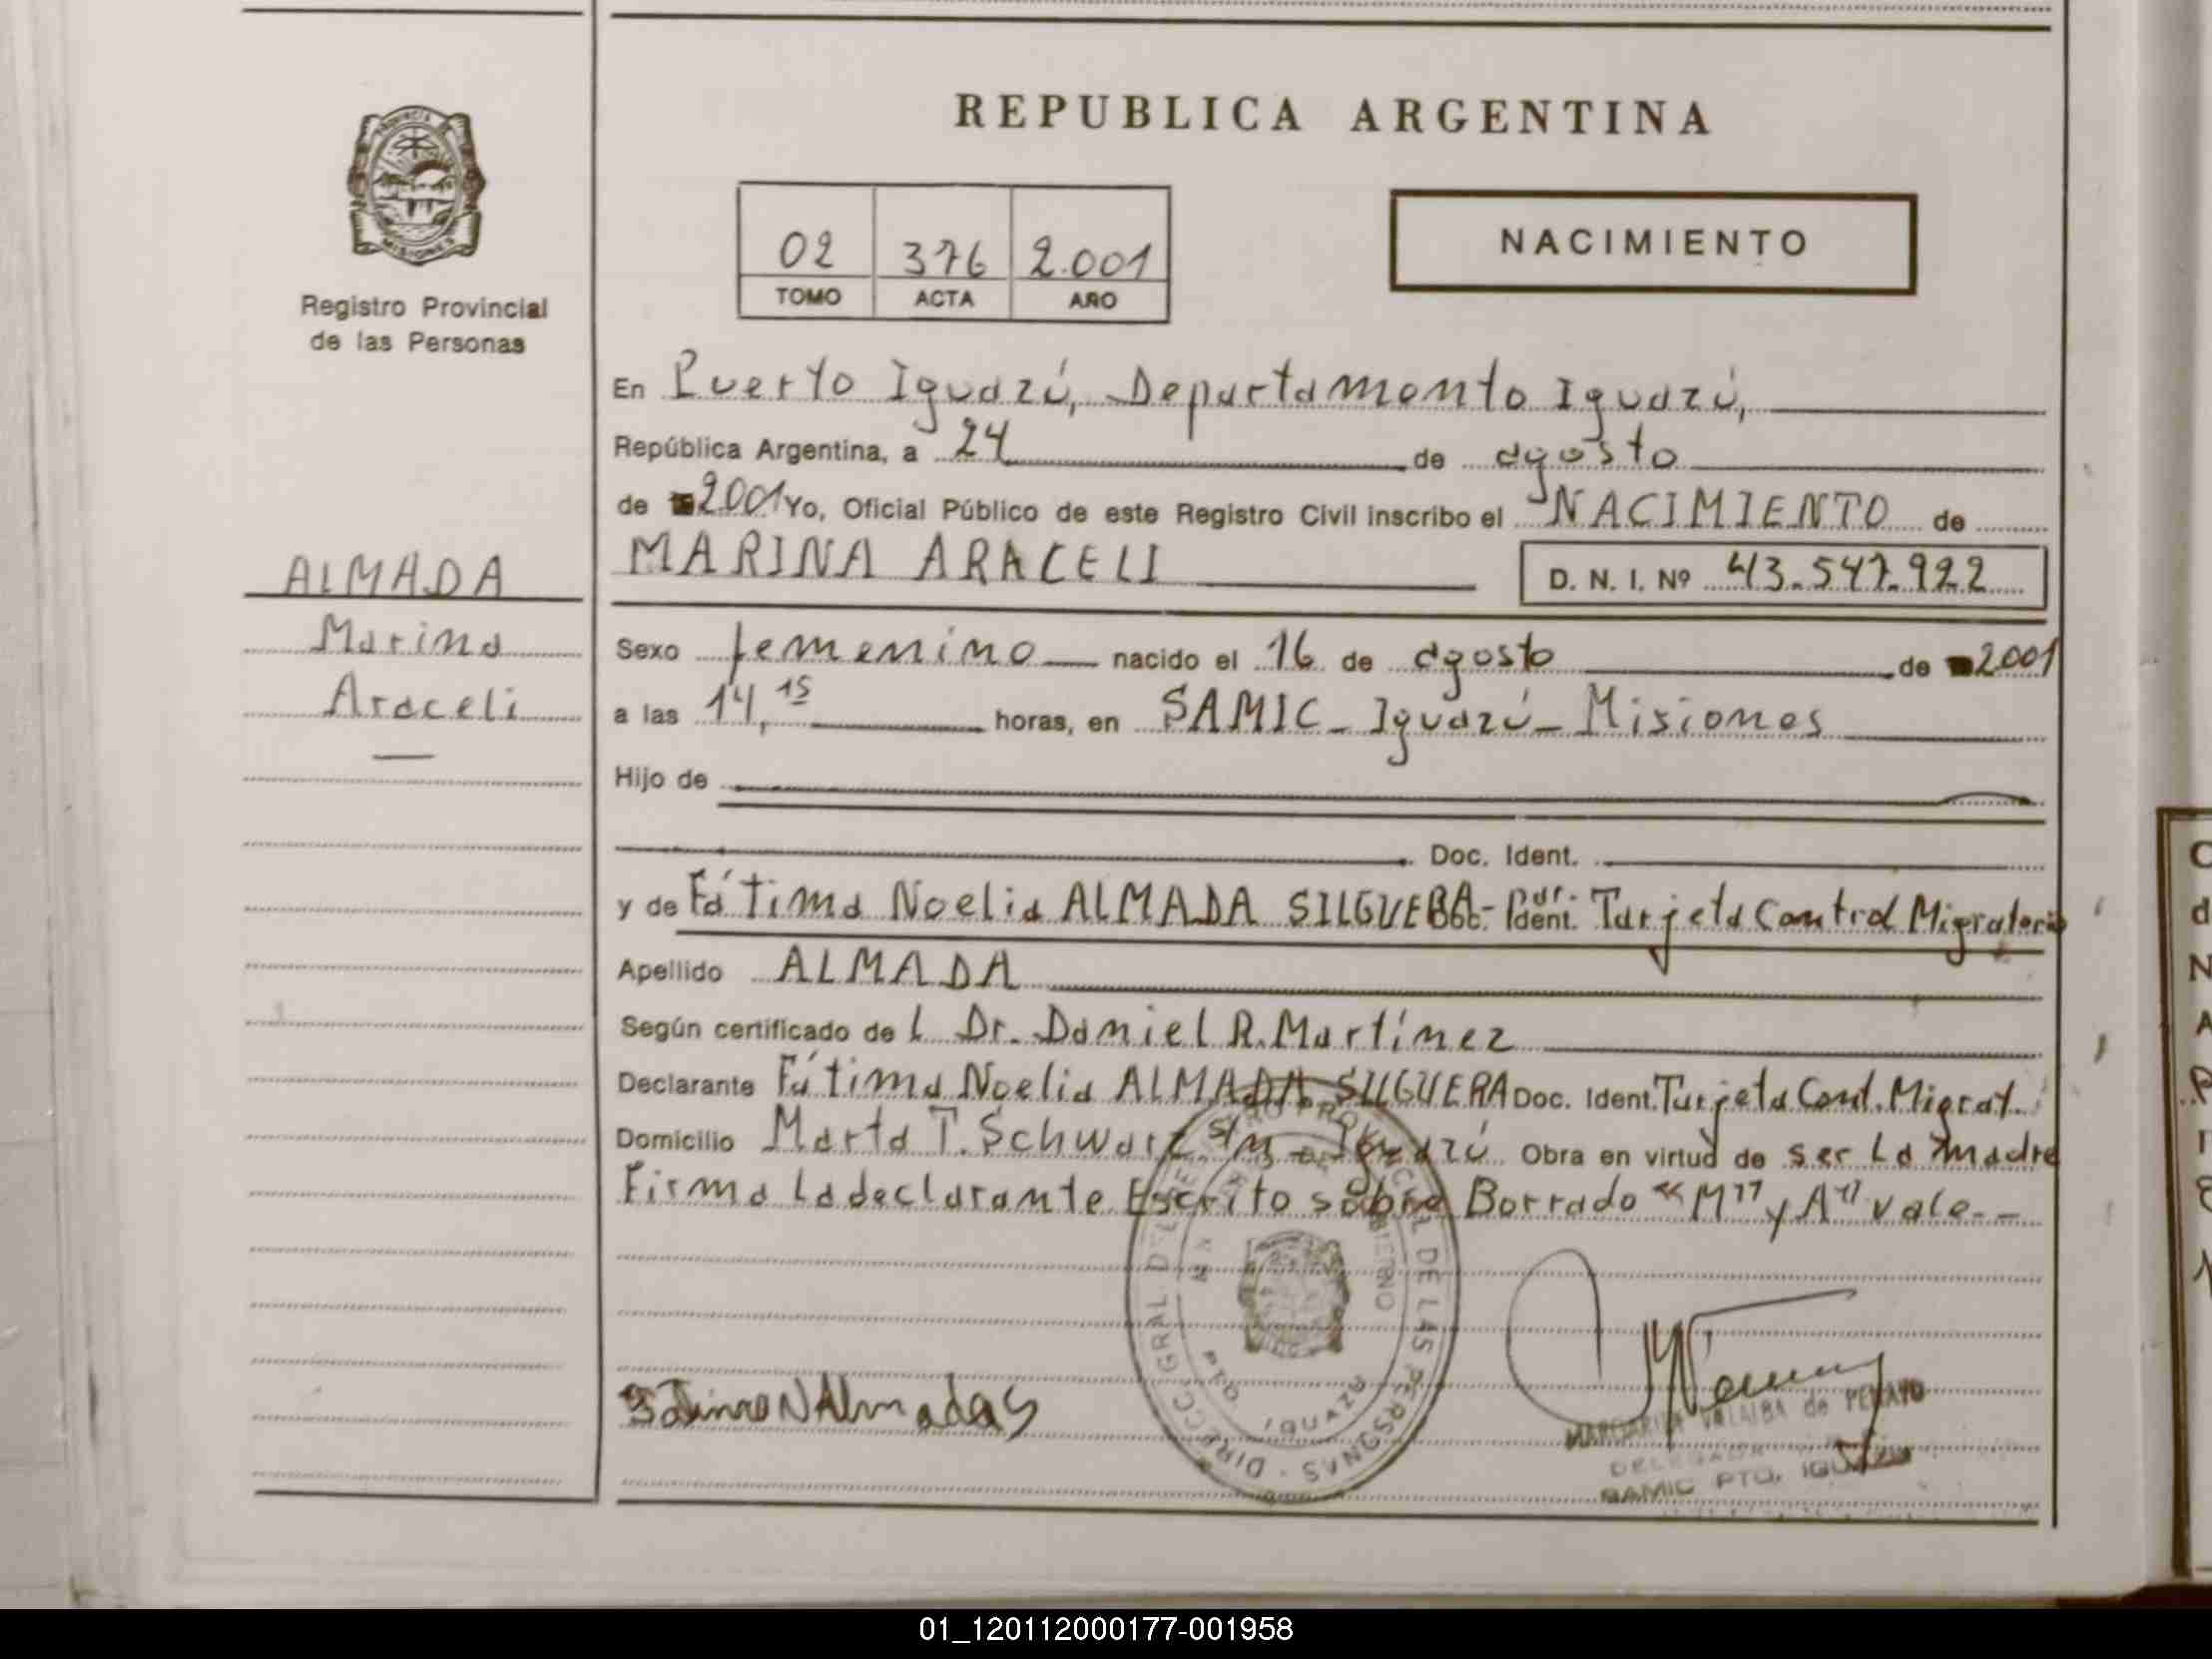 REPUBLICA ARGENTINA
PROVINCIA DE
MISIONES
Registro Provincial
de las Personas
02 376 2.001
TOMO ACTA AÑO
NACIMIENTO
En Puerto Iguazú, Departamento Iguazú,
República Argentina, a 24 de agosto
de 2001 Yo, Oficial Público de este Registro Civil inscribo el NACIMIENTO de
MARINA ARACELI D. N. I. Nº 43.547.922
ALMADA
Marina
Araceli
Sexo femenino nacido el 16 de agosto de 2001
a las 14,15 horas, en SAMIC - Iguazú - Misiones
Hijo de
Doc. Ident.
y de Fátima Noelia ALMADA SILGUERA- Doc. Ident. Tarjeta Control Migratorio
Apellido ALMADA
Según certificado de L Dr. Daniel R. Martínez
Declarante Fátima Noelia ALMADA SILGUERA Doc. Ident. Tarjeta Cont. Migrat.
Domicilio Marta T. Schwarz s/n - Iguazú Obra en virtud de ser La madre
Firma La declarante Escrito sobre Borrado "M" y A" vale.--
DIRECC. GRAL. DEL REGISTRO PROVINCIAL DE LAS PERSONAS
PTO. IGUAZU
MARGARITA VILLALBA de PENAYO
DELEGADA
SAMIC PTO. IGUAZU
01_120112000177-001958